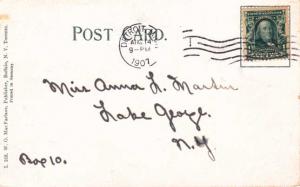 POST CARD.
DETROIT
AUG 14
9-PM
1907
Miss Anna L. Martin
Lake George.
N.Y.
Box 10.
L 103. W. G. MacFarlane, Publisher, Buffalo, N. Y. Toronto.
Printed in Germany